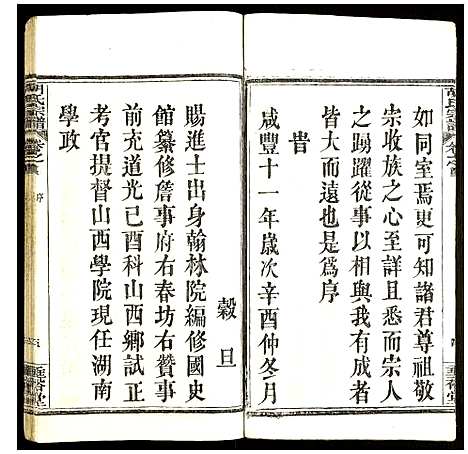 如同室焉更可知諸君尊祖敬
宗收族之心至詳且悉而宗人
之踴躍從事以相與我有成者
皆大而遠也是為序
咸豐十一年歲次辛酉仲冬月
穀旦
賜進士出身翰林院編修國史
館纂修詹事府右春坊右贊事
前充道光己酉科山西鄉試正
考官提督山西學院現任湖南
學政
胡氏宗譜
序